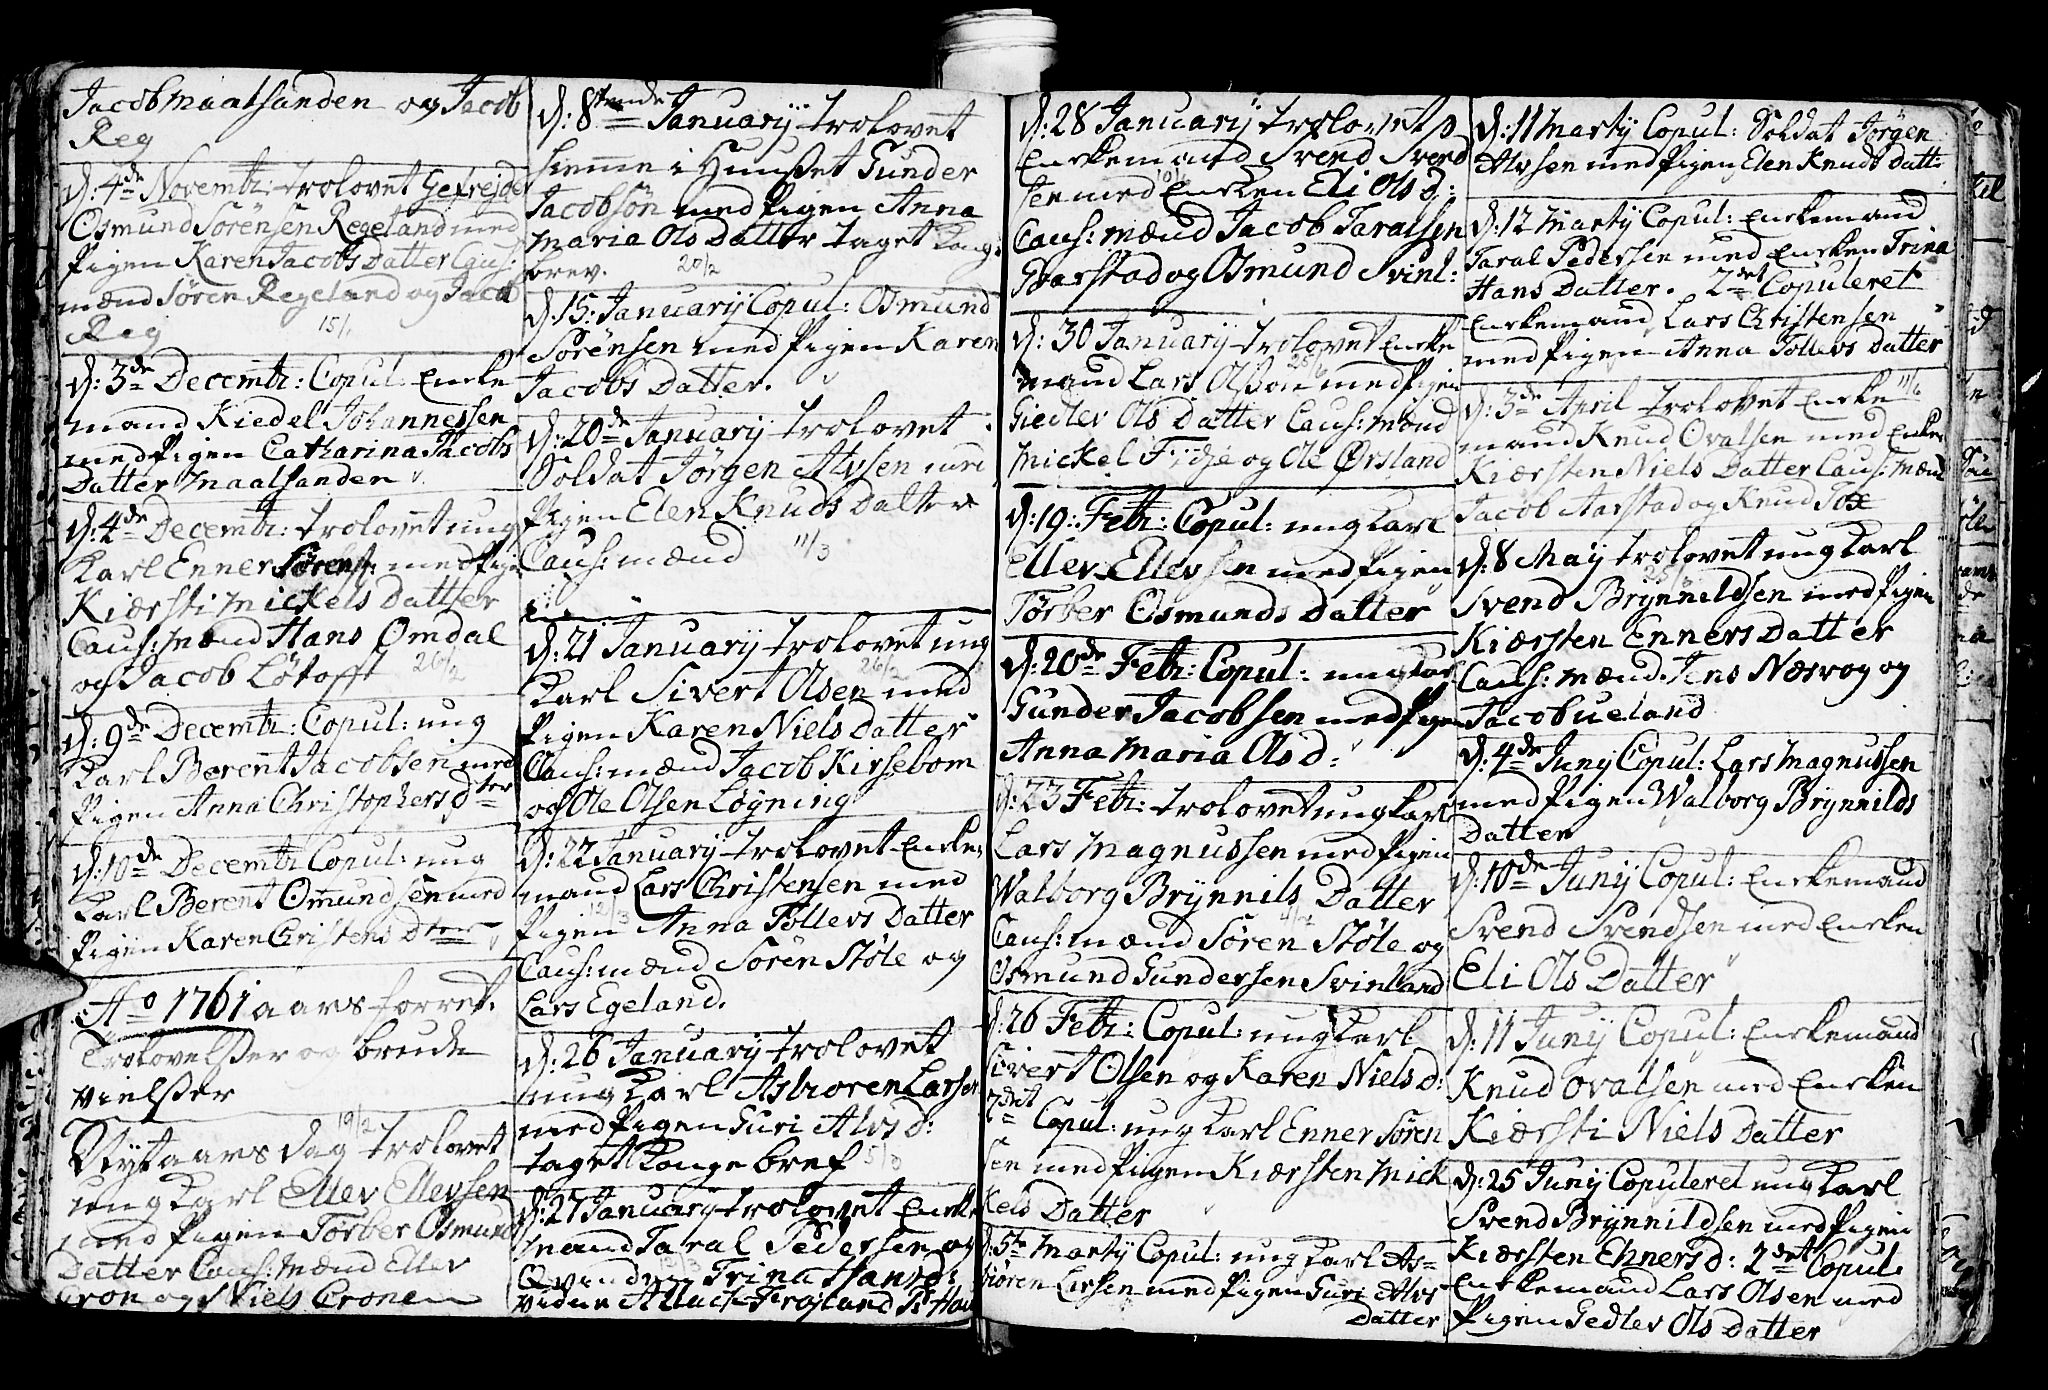 Jacob Maalsanden og Jacob
Reg
d: 4de Novembr: trolovet Gefrejder
Osmund Sörensen Regeland med
Pigen Karen Jacobs Datter Caus:
mænd Sören Regeland og Jacob
Reg 15/1
d: 3de Decembr: Copul: Encke
mand Kiedel Johannessen
med Pigen Catharina Jacobs
Datter Maalsanden
d: 4de Decembr: trolovet ung
Karl Enner Sörens: med Pigen
Kiærsti Mickels Datter
Caus: mænd Hans Omdal
og Jacob Lötofft 26/2
d: 9de Decembr: Copul: ung
Karl Berent Jacobsen med
Pigen Anna Christophers dter
d: 10de Decembr Copul: ung
Karl Berent Omundsen med
Pigen Karen Christens Dter
Ao 1761 aars forret:
Trolovelsser og brude
vielsser
19/2
Nytaars dag trolovet
ung Karl Ellev Ellevsen
med Pigen Torber Osmunds
Datter Caus: Mænd Ellev
Cron og Niels Cronen
d: 8tende January trolovet
hieme i Hunsset Gunder
Jacobsön med Pigen Anna
Maria Ols Datter taget Konge
brev. 20/2
d. 15: January Copul: Osmund
Sörensen med Pigen Karen
Jacobs Datter.
d: 20de January trolovet
Soldat Jörgen Alvsen med
Pigen Elen Knuds Datter
Caus: mænd 11/3
d: 21 January trolovet ung
26/2
Karl Sivert Olsen med
Pigen Karen Niels Datter
Caus: mænd Jacob Kirsebom
og Ole Olsen Løgning
d: 22 January trolovet Encke
mand Lars Christensen med
12/3
Pigen Anna Tollevs Datter
Caus: mænd Sören Støle og
Lars Egeland.
d: 26 January trolovet
ung Karl Asbioren Larsen
med Pigen Guri Alvs d:
taget Konge bref 5/3
d: 27 January trolovet Encke
mand Taral Pedersen og
Qvinden Trina Hans d:
vidne Frøjland
d: 28 January trolovet
Enckemand Svend Svend
10/6
sen med Encken Eli Ols d:
Caus: mænd Jacob Taralsen
Barstad og Osmund Svinl:
d: 30 January trolovet Encke
25/6
mand Lars Olsson med Pigen
Giedlev Ols Datter Caus: mænd
Mickel Fidje og Ole Ørsland
d: 19: Febr: Copul: ung Karl
Ellev Ellevsen med Pigen
Törber Osmunds Datter
d: 20de Febr: Copul: ung Karl
Gunder Jacobsen med Pigen
Anna Maria Ols d:
d: 23 Febr: trolovet ung Karl
Lars Magnussen med Pigen
Walborg Brÿnnils Datter
Caus: mænd Sören Støle og
Osmund Gundersen Svinland
d: 26 Febr: Copul: ung Karl
Sivert Olsen og Karen Niels d:
2det Copul: ung Karl Enner Sören
sen med Pigen Kiærsten Mick
kels Datter
d: 5te Marty Copul: ung Karl As=
biören Larsen med Pigen Guri Alvs
Datter
d: 11 Marty Copul: Soldat Jörgen
Alvsen med Pigen Elen Knuds Datt:
d: 12 Marty Copul: Enckemand
Taral Pedersen med Encken Trina
Hans Datter. 2det Copuleret
Enckemand Lars Christensen
med Pigen Anna Tollevs Datter
d: 3de April trolovet Encke 11/6
mand Knud Ovalsen med Encken
Kiærsten Niels Datter Caus: Mænd
Jacob Aarstad og Knud Toxe
d: 8 May trolovet ung Karl
25/6
Svend Brÿnnildsen med Pigen
Kiærsten Enners Datter
Caus: mænd Jens Næsvog og
Jacob Ueland
d: 4de Juny Copul: Lars Magnussen
med Pigen Walborg Brÿnnilds
Datter
d: 10de Juny Copul: Enckemand
Svend Svendsen med Encken
Eli Ols Datter
d: 11 Juny Copul: Enckemand
Knud Ovalsen med Encken
Kiærsti Niels Datter
d: 25 Juny Copuleret ung Karl
Svend Brÿnnildsen med Pigen
Kiærsten Enners d: 2det Copul:
Enckemand Lars Olsen med
Pigen Gedlev Ols Datter